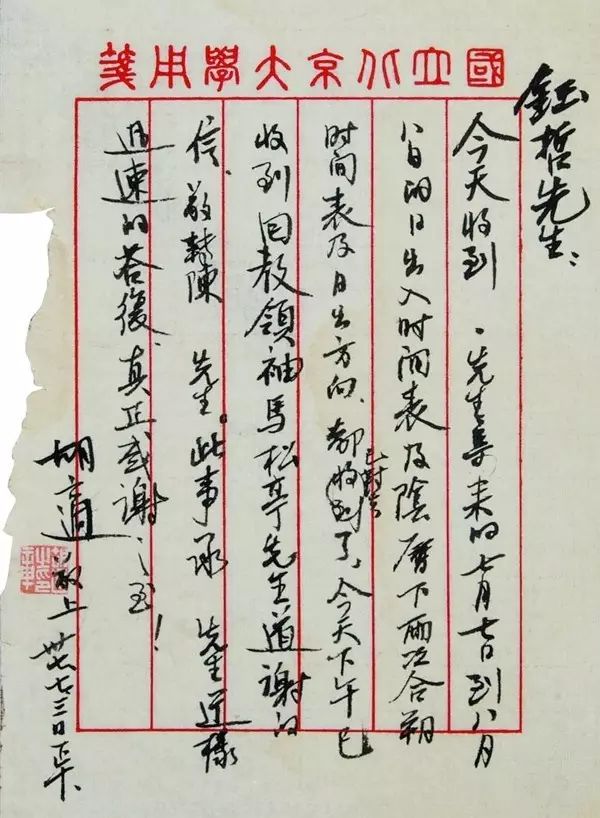 國立北京大學用箋
鈺哲先生：
今天收到 先生寄来的七月七日到八月
八日的日出入时间表及陰曆下兩次合朔
时间表及日出方向、都收到了、今天下午已
收到回教領袖馬松亭先生道謝的
信、敬轉陳 先生。此事承 先生这樣
迅速的荅復、真正感謝之至！
胡適敬上 卅七、七、三日下午